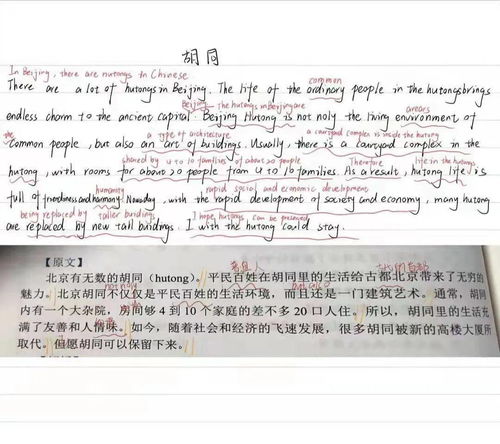 胡同
In Beijing, there are hutongs in Chinese
There are a lot of hutongs in Beijing. The life of the ordinary people in the hutongs brings
common
endless charm to the ancient capital. Beijing Hutong is not noly the living environment of
Beijing the hutongs in Beijing are
areas
the
common people, but also an art of buildings. Usually, there is a courtyard complex in the
a type of architecture
a courtyard complex is inside the hutong
hutong, with rooms for about 20 people from 4 to 10 families. As a result, hutong life is
shared by 4 to 10 families of about 20 people
Therefore
life in the hutongs
full of friendness and harmony. Nowaday, with the rapid development of society and economy, many hutong
humanity
rapid social and economic development
are replaced by new tall buildings. I wish the hutong could stay.
being replaced by taller buildings
I hope hutongs can be preserved
【原文】
北京有无数的胡同（hutong）。平民百姓在胡同里的生活给古都北京带来了无穷的
魅力。北京胡同不仅仅是平民百姓的生活环境，而且还是一门建筑艺术。通常，胡同
not only
but also
内有一个大杂院，房间够 4 到 10 个家庭的差不多 20 口人住。所以，胡同里的生活充
满了友善和人情味。如今，随着社会和经济的飞速发展，很多胡同被新的高楼大厦所
取代。但愿胡同可以保留下来。